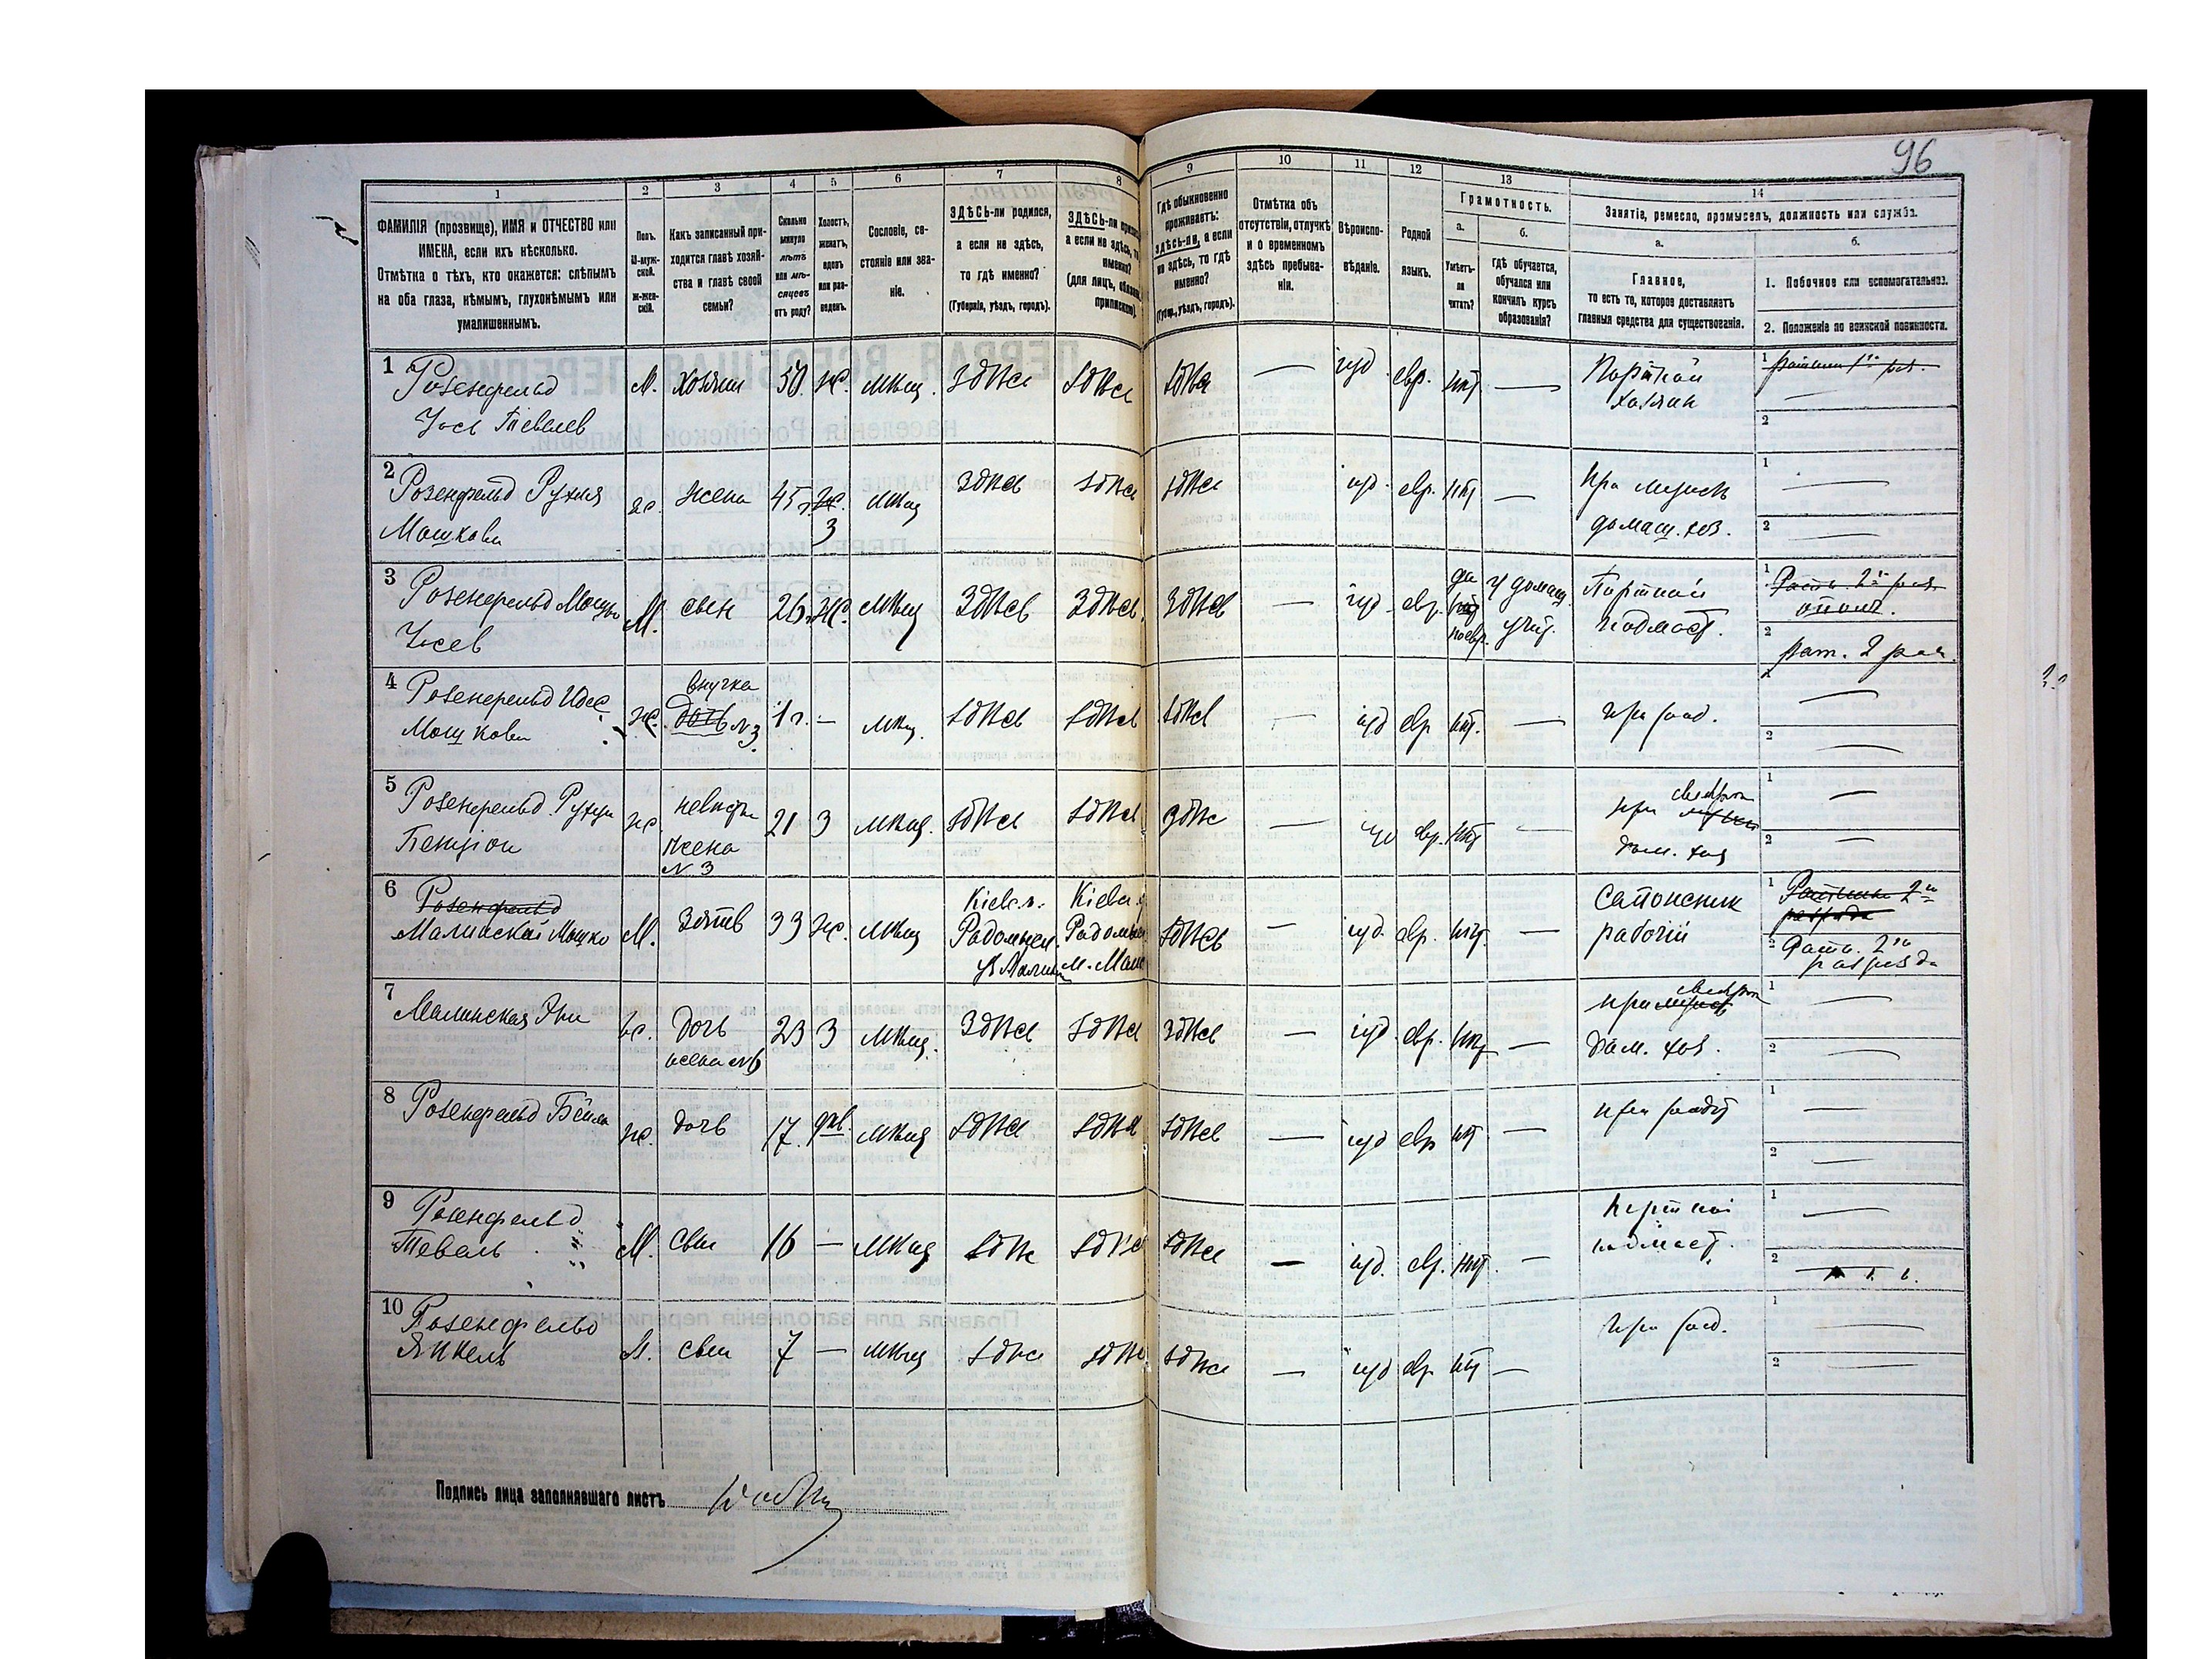 96
1
2
3
4
5
6
7
8
9
10
11
12
13
14
ФАМИЛІЯ (прозвище), ИМЯ и ОТЧЕСТВО или
ИМЕНА, если ихъ нѣсколько.
Отмѣтка о тѣхъ, кто окажется: слѣпымъ
на оба глаза, нѣмымъ, глухонѣмымъ или
умалишеннымъ.
Полъ.
М-муж-
ской.
Ж-жен-
скій.
Какъ записанный при-
ходится главѣ хозяй-
ства и главѣ своей
семьи?
Сколько
минуло
лѣтъ
или мѣ-
сяцевъ
отъ роду?
Холостъ,
женатъ,
вдовъ
или раз-
веденъ.
Сословіе, со-
стояніе или зва-
ніе.
ЗДѢСЬ-ли родился,
а если не здѣсь,
то гдѣ именно?
(Губернія, уѣздъ, городъ).
ЗДѢСЬ-ли
а если не здѣсь, то
именно?
(для лицъ,
Гдѣ обыкновенно
проживаетъ:
здѣсь-ли, а если
не здѣсь, то гдѣ
именно?
(Губер., уѣздъ, городъ).
Отмѣтка объ
отсутствіи, отлучкѣ
и о временномъ
здѣсь пребыва-
ніи.
Вѣроиспо-
вѣданіе.
Родной
языкъ.
Грамотность.
а.
б.
Умѣетъ-
ли
читать?
Гдѣ обучается,
обучался или
кончилъ курсъ
образованія?
Занятіе, ремесло, промыселъ, должность или служба.
а.
б.
Главное,
то есть то, которое доставляетъ
главныя средства для существованія.
1. Побочное или вспомогательное.
2. Положеніе по воинской повинности.
1 Розенфельд М. хозяин 50 ж. мѣщ. здѣсь здѣсь здѣсь — іуд. евр. нѣт — Портной 1
Іось Тевелев хозяин
2
2 Розенфельд Рухля ж. жена 45 мѣщ здѣсь здѣсь здѣсь іуд. евр. нѣт — при мужѣ 1 —
Мошкови 3 домаш. хоз. 2 —
3 Розенфельд Мошко М. сын 26 ж. мѣщ здѣсь здѣсь здѣсь — іуд. евр. да у домаш. Портной 1
Іосев по евр. учит. подмаст. 2 рат. 2 раз.
4 Розенфельд ж. внучка 1 г. — мѣщ. здѣсь здѣсь здѣсь — іуд евр нѣт. — при род. 1 —
Мошкови дочь N 3 2 —
5 Розенфельд Рухля ж. невѣстка 21 3 мѣщ. здѣсь здѣсь здѣсь — евр. нѣт — при свекром 1 —
жена дом. хоз 2 —
N 3
6 Розенфельд Кіевс. г. Кіевс. Сапожник 1 Ратник 2
Малинскій Мошко М. Зять 33 ж. мѣщ Радомысл. здѣсь — іуд. евр. нѣт. — рабочій разряда
2 Ратн. 2 го
разряда
7 Малинская ж. дочь 23 3 мѣщ. здѣсь здѣсь здѣсь — іуд. евр. нѣт — при 1 —
жена N 6 дом. хоз. 2 —
8 Розенфельд Бейла ж. дочь 17. дѣв. мѣщ здѣсь здѣсь здѣсь — іуд евр нѣт — при 1 —
2 —
9 Розенфельд Портной 1 —
Тевель М. сын 16 — мѣщ здѣсь здѣсь здѣсь — іуд. евр. нѣт. — подмаст. 2
10 Розенфельд при род. 1 —
Янкель М. сын 7 — мѣщ здѣсь здѣсь здѣсь — іуд евр нѣт — 2 —
Подпись лица заполнявшаго листъ